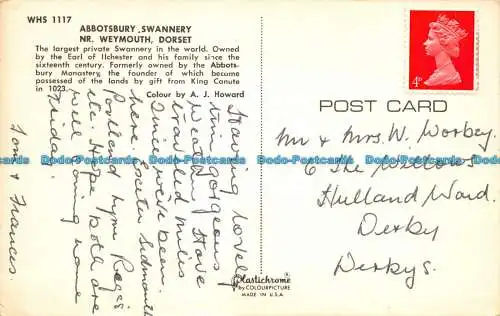 WHS 1117
ABBOTSBURY SWANNERY
NR. WEYMOUTH, DORSET
The largest private Swannery in the world. Owned
by the Earl of Ilchester and his family since the
sixteenth century. Formerly owned by the Abbots-
bury Monastery, the founder of which became
possessed of the lands by gift from King Canute
in 1023.
Colour by A. J. Howard
Having lovely
trip gorgeous
weather. Have
travelled miles
since we've been
here. Exeter Sidmouth
Portland Lyme Regis
etc. Hope both are
well. Coming home
Friday.
Tom & Frances.
4D
POST CARD
Mr & Mrs. W. Worbey.
6 The Willows
Hulland Ward.
Derby
Derbys.
Plastichrome
by COLOURPICTURE
MADE IN U.S.A.